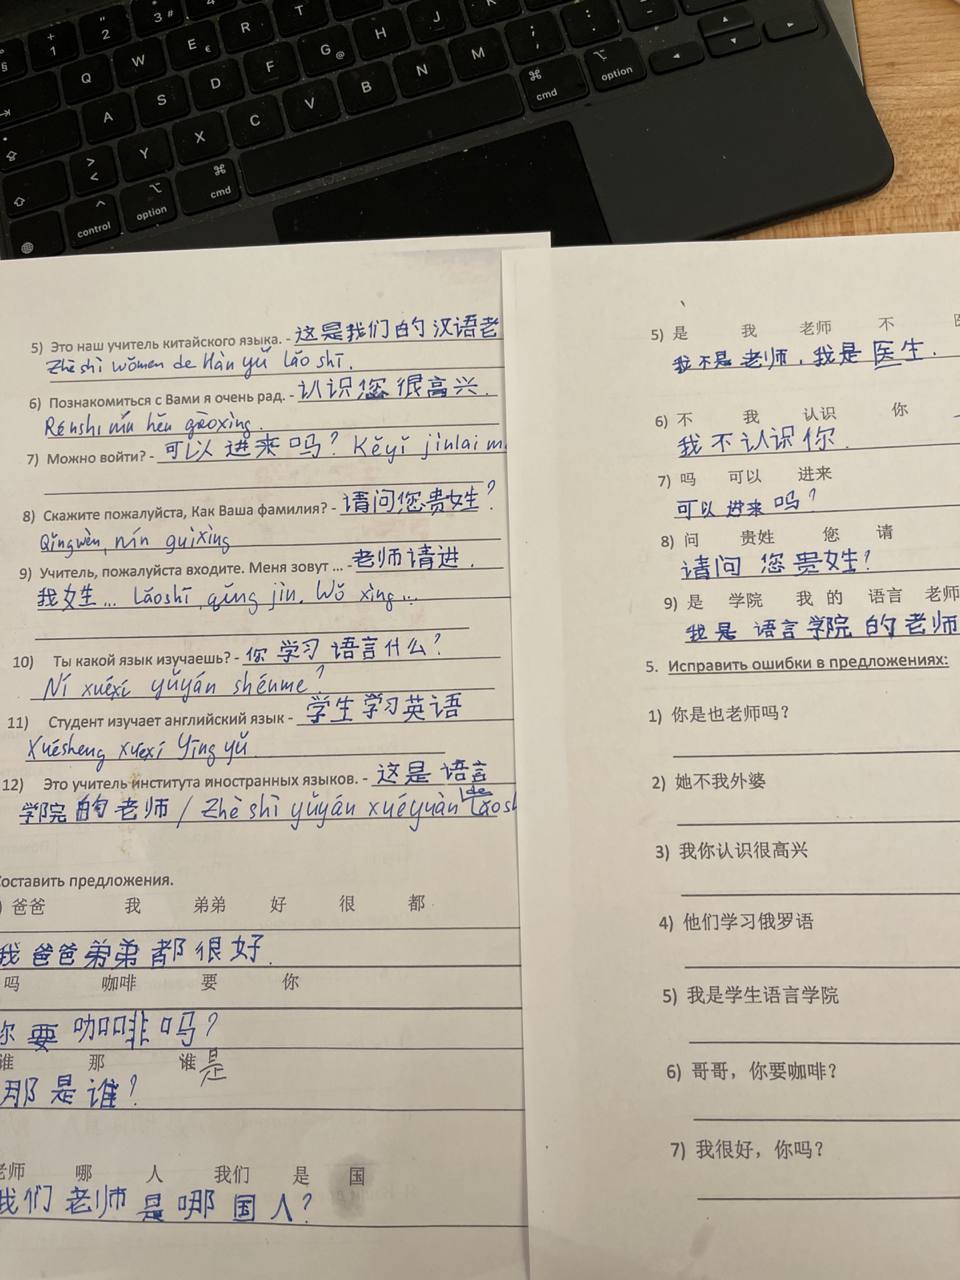 5) Это наш учитель китайского языка. - 这是我们的汉语老
Zhè shì wǒmen de Hàn yǔ lǎo shī.
6) Познакомиться с Вами я очень рад. - 认识您很高兴.
Rènshi nín hěn gāoxìng.
7) Можно войти? - 可以进来吗? Kěyǐ jìnlai m
8) Скажите пожалуйста, Как Ваша фамилия? - 请问您贵姓?
Qǐngwèn, nín guìxìng
9) Учитель, пожалуйста входите. Меня зовут ... - 老师请进.
我姓... Lǎoshī, qǐng jìn. Wǒ xìng...
10) Ты какой язык изучаешь? - 你学习语言什么?
Nǐ xuéxí yǔyán shénme?
11) Студент изучает английский язык - 学生学习英语
Xuésheng xuéxí Yīng yǔ
12) Это учитель института иностранных языков. - 这是语言
学院的老师 / Zhè shì yǔyán xuéyuàn de Lǎosh
Составить предложения.
) 爸爸 我 弟弟 好 很 都
我爸爸弟弟都很好.
吗 咖啡 要 你
你要咖啡吗?
谁 那 谁 是
那是谁?
老师 哪 人 我们 是 国
我们老师是哪国人?
5) 是 我 老师 不
我不是老师, 我是医生.
6) 不 我 认识 你
我不认识你.
7) 吗 可以 进来
可以进来吗?
8) 问 贵姓 您 请
请问您贵姓?
9) 是 学院 我 的 语言 老师
我是语言学院的老师
5. Исправить ошибки в предложениях:
1) 你是也老师吗?
2) 她不我外婆
3) 我你认识很高兴
4) 他们学习俄罗语
5) 我是学生语言学院
6) 哥哥，你要咖啡?
7) 我很好，你吗?
1
2
3
#
Q
W
E
€
R
T
A
S
D
F
G
@
H
J
K
Y
X
C
V
B
N
M
control
option
cmd
cmd
option